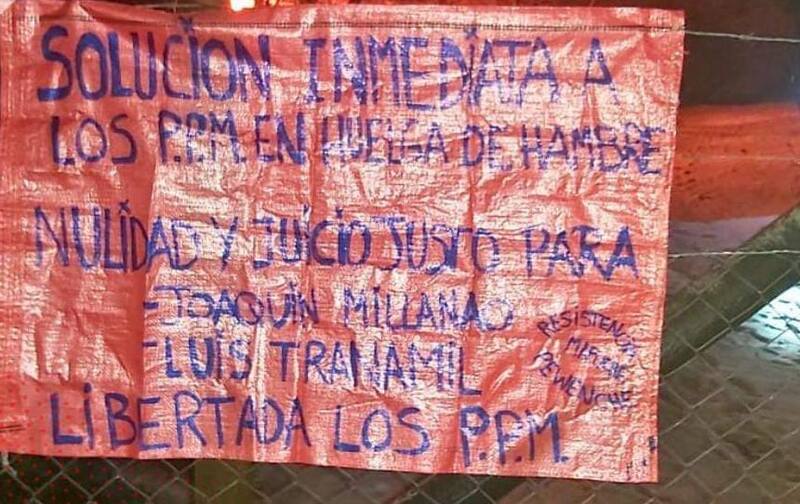 SOLUCION INMEDIATA A
LOS P.P.M. EN HUELGA DE HAMBRE
NULIDAD Y JUICIO JUSTO PARA
-JOAQUÍN MILLANAO
-LUIS TRANAMIL
LIBERTAD A LOS P.P.M.
RESISTENCIA
PEWENCHE